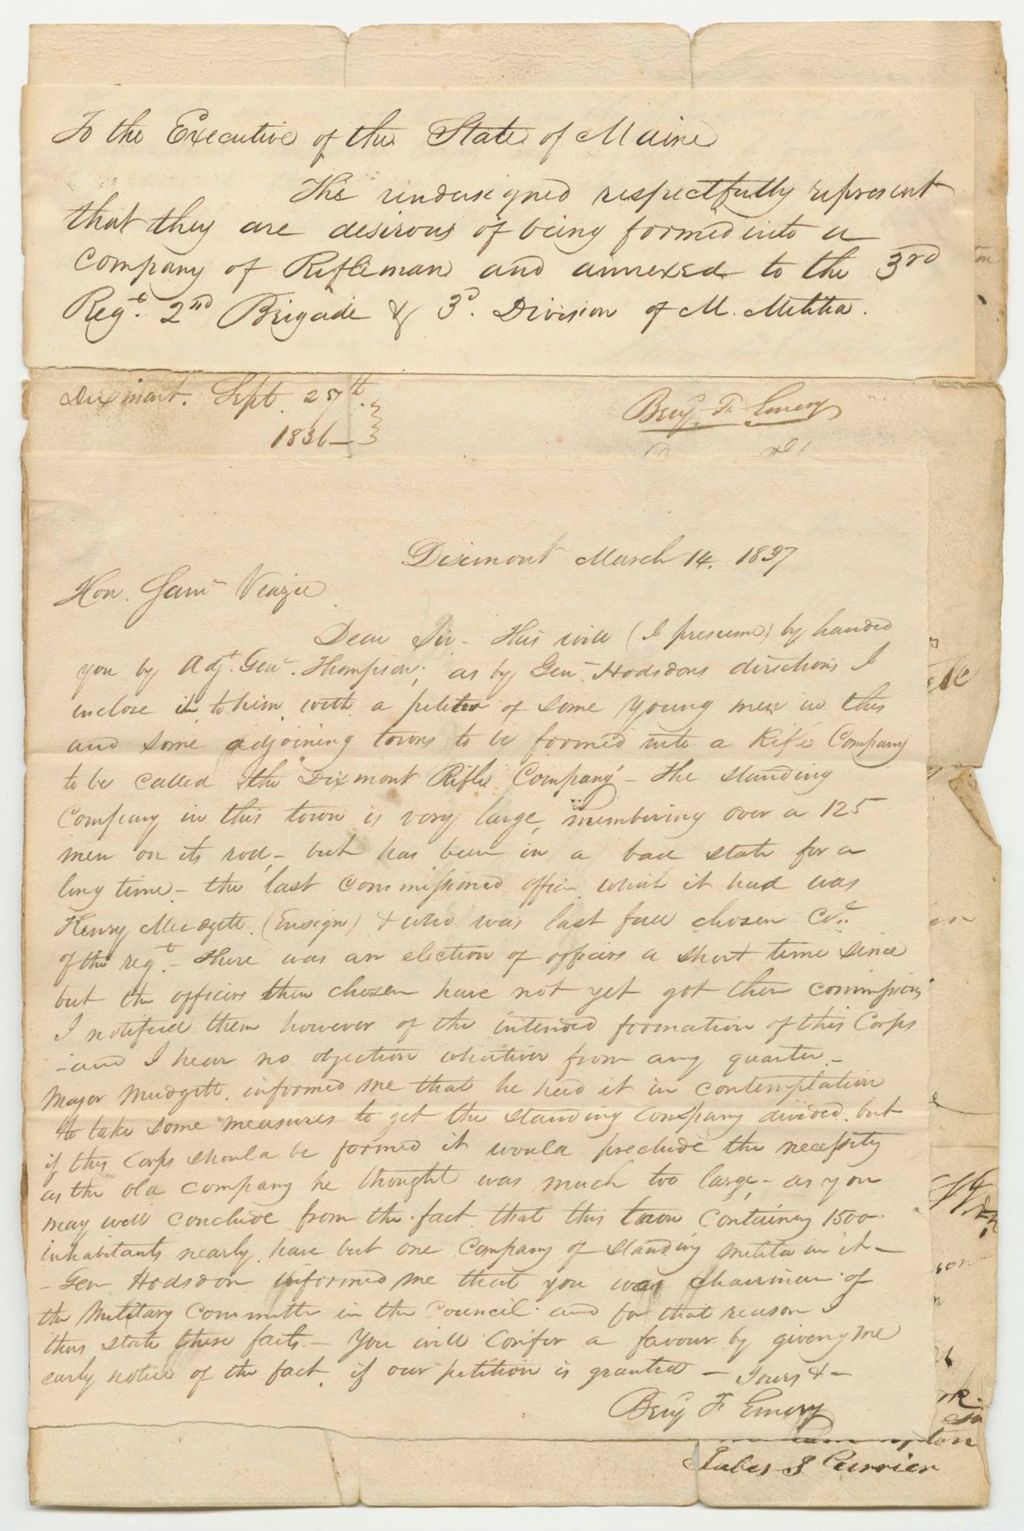 To the Executive of the State of Maine
The undersigned respectfully represent
that they are desirous of being formed into a
Company of Rifleman and annexed to the 3rd
Regt. 2nd Brigade & 3d. Division of M. Militia.
Dixmont. Sept. 25th.
1836
Benj. F. Emery
Dixmont March 14. 1837
Hon. Saml Veazie
Dear Sir - This will (I presume) by handed
you by Adjt. Genl. Thompson; as by Genl. Hodsdons directions I
inclose it to him with a petition of some young men in this
and some adjoining towns to be formed into a Rifle Company
to be called "the Dixmont Rifle Company" - The standing
Company in this town is very large, numbering over a 125
men on its roll - but has been in a bad state for a
long time - the last commissioned officer which it had was
Henry Mudgett (Ensign) & who was last fall chosen
of the regt. - There was an election of officers a short time since
but the officers then chosen have not yet got their commissions
I notified them however of the intended formation of this Corps
- and I hear no objection whatever from any quarter. -
Major Mudgett informed me that he had it in contemplation
to take some measures to get the standing Company divided. but
if this Corps should be formed it would preclude the necessity
as the old company he thought was much too large - as you
may well conclude from the fact that this town containing 1500
inhabitants nearly have but one Company of standing militia in it -
- Gen Hodsdon informed me that you was chairman of
the Military Committee in the Council and for that reason I
thus state these facts - You will confer a favour by giving me
early notice of the fact, if our petition is granted - Yours & -
Benj F Emery
S Currier